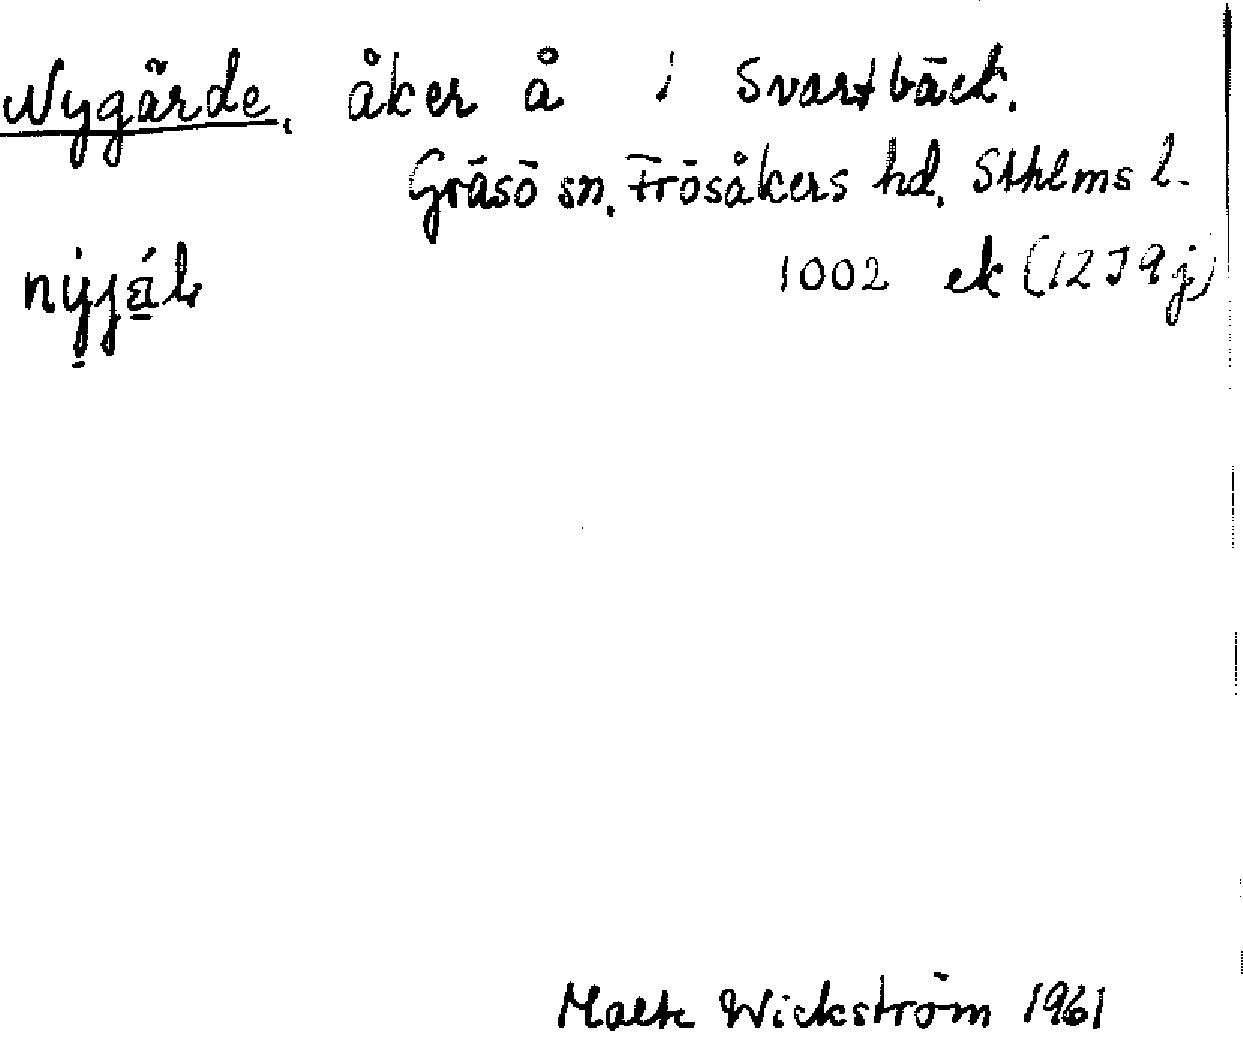 Nygärde, åker å i Svartbäck.
Gräsö sn. Frösåkers hd. Sthlms l.
1002 ek (12J9j)
Malte Wickström 1961